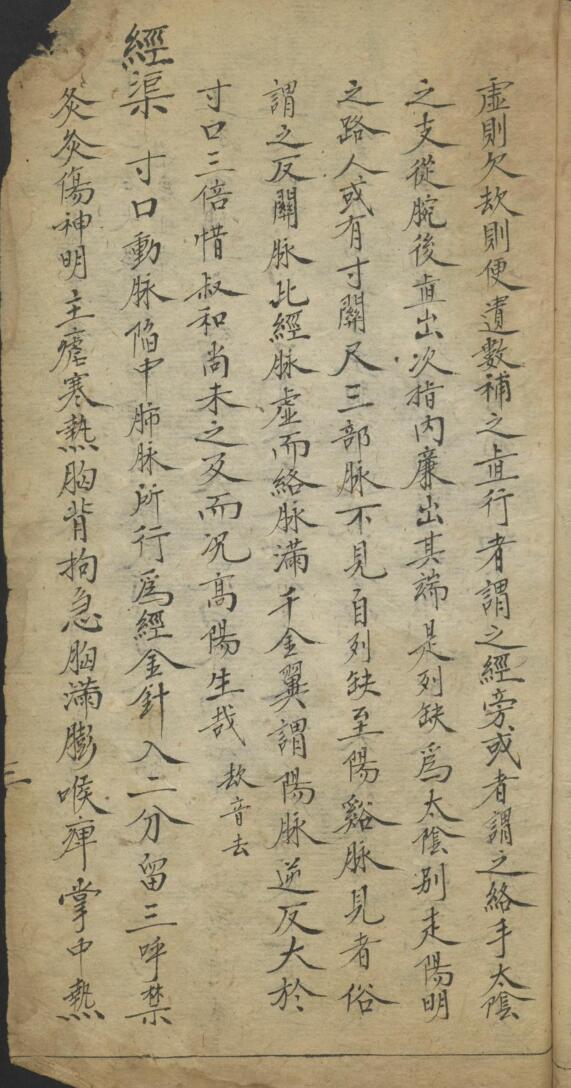 虛則欠㰦則便遺數補之直行者謂之經旁或者謂之絡手太陰
之支從腕後直出次指內廉出其端是列缺爲太陰別走陽明
之路人或有寸關尺三部脉不見自列缺至陽谿脉見者俗
謂之反關脉比經脉虛而絡脉滿千金翼謂陽脉逆反大於
寸口三倍惜叔和尚未之及而况髙陽生哉 㰦音去
經渠 寸口動脉陷中肺脉所行爲經金針入二分留三呼禁
灸灸傷神明主瘧寒熱胸背拘急胸滿膨喉痺掌中熱
三